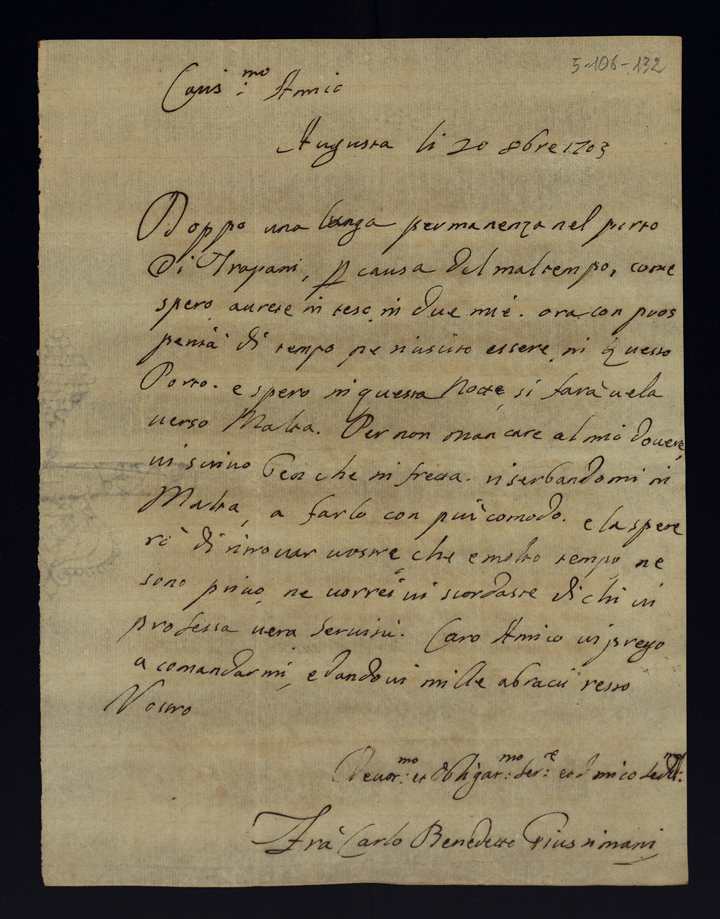 5-106-132
Caris:mo Amico
Augusta li 20 8bre 1703
Doppo una longa permanenza nel porto
di Trapani, p causa del mal tempo, come
spero aurete inteso in due mie. ora con puos
perità di tempo ne riuscito essere in questo
Porto. e spero in questa Notte si farà uela
uerso Malta. Per non mancare al mio douere,
ui scriuo ben che in fretta. riserbandomi in
Malta, a farlo con più comodo. e la spere
rò di ritrouar uostre che e molto tempo ne
sono priuo, ne uorrei ui scordaste di chi ui
professa uera seruitù. Caro Amico ui prego
a comandarmi, e dandoui mille abracii resto
Vostro
Deuot:mo et Obligat:mo Ser:re et Amico fedel:
Frà Carlo Benedetto Giustiniani